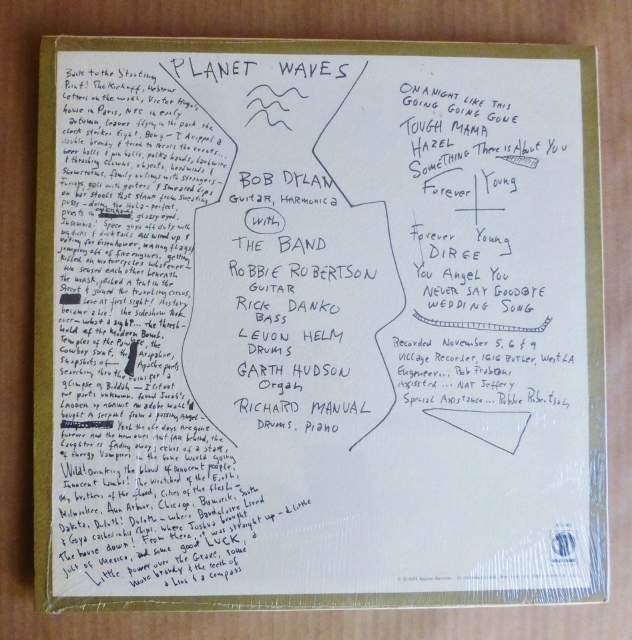 PLANET WAVES
BOB DYLAN
GUITAR, HARMONICA
with
THE BAND
ROBBIE ROBERTSON
GUITAR
RICK DANKO
BASS
LEVON HELM
DRUMS
GARTH HUDSON
Organ
RICHARD MANUAL
DRUMS, PIANO
ON A NIGHT LIKE THIS
GOING GOING GONE
TOUGH MAMA
HAZEL
SOMETHING There is About You
Forever Young
Forever Young
DIRGE
You Angel You
NEVER SAY GOODBYE
WEDDING SONG
Recorded November 5, 6 & 9
Village Recorder, 1616 BUTLER, West LA
Engeneer... Rob Fraboni
Assisted... NAT Jeffery
Special Assistance... Robbie Robertson
Back to the Starting
Point! The Kickoff, Hebrew
Letters on the wall, Victor Hugo's
house in Paris, NYC in early
autumn, leaves flying in the park, the
clock strikes Eight, Bong— I dropped a
double brandy & tried to recall the events...
beer halls & pin balls, polka bands, barbwire
& thrashing clowns, objects, headwinds &
Snowstorms, family outings with strangers—
Furious gals with garters & smeared lips
on bar stools that stank from sweating
pussy— doing the Hula—perfect,
priests in glassy eyed,
Insomnia! Space guys off duty with
big dicks & ducktails All wired up &
voting for Eisenhower, waving flags &
jumping off of fire engines, getting
killed on motorcycles whatever—
We sensed each other beneath
the mask, pitched a tent in the
Street & joined the traveling circus,
Love at first sight! History
became a lie! the sideshow took
over—what a sight... The thresh-
hold of the Modern Bomb,
Temples of the Pawnee, the
Cowboy Saint, the Arapahoe,
Snapshots of Apache poets
Searching thru the ruins for a
glimpse of Buddah— I lit out
for parts unknown, found Jacob's
Ladder up against an adobe wall &
bought a serpent from a passing Angel—
Yeah the ole days are gone
forever And the new ones Aint far behind, the
Laughter is fading away, echos of a star,
of Energy Vampires in the Gone World going
Wild! Drinking the blood of innocent people,
Innocent Lambs! The Wretched of the Earth,
My brothers of the flood, Cities of the flesh—
Milwaukee, Ann Arbor, Chicago, Bismarck, South
Dakota, Duluth! Duluth— where Baudelaire Lived
& Goya cashed in his Chips, where Joshua brought
The house down! From there, it was straight up— A Little
jolt of Mexico, and some good LUCK, a
Little power over the Grave, some
more brandy & the teeth of
a Lion & a compass